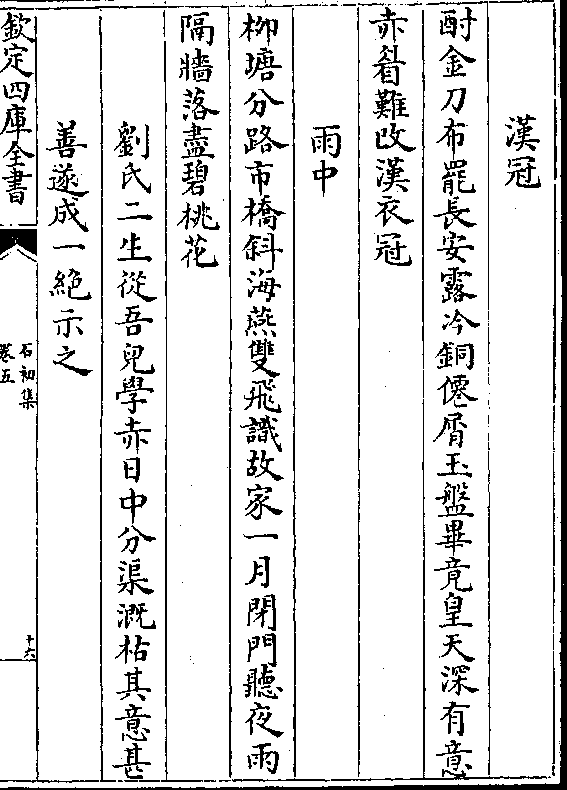 漢冠
酎金刀布罷長安露冷銅僊屑玉盤畢竟皇天深有意
赤眉難改漢衣冠
雨中
柳塘分路市橋斜海燕雙飛識故家一月閉門聽夜雨
隔牆落盡碧桃花
劉氏二生從吾兒學赤日中分渠溉枯其意甚
善遂成一絶示之
欽定四庫全書
石初集
卷五
十六